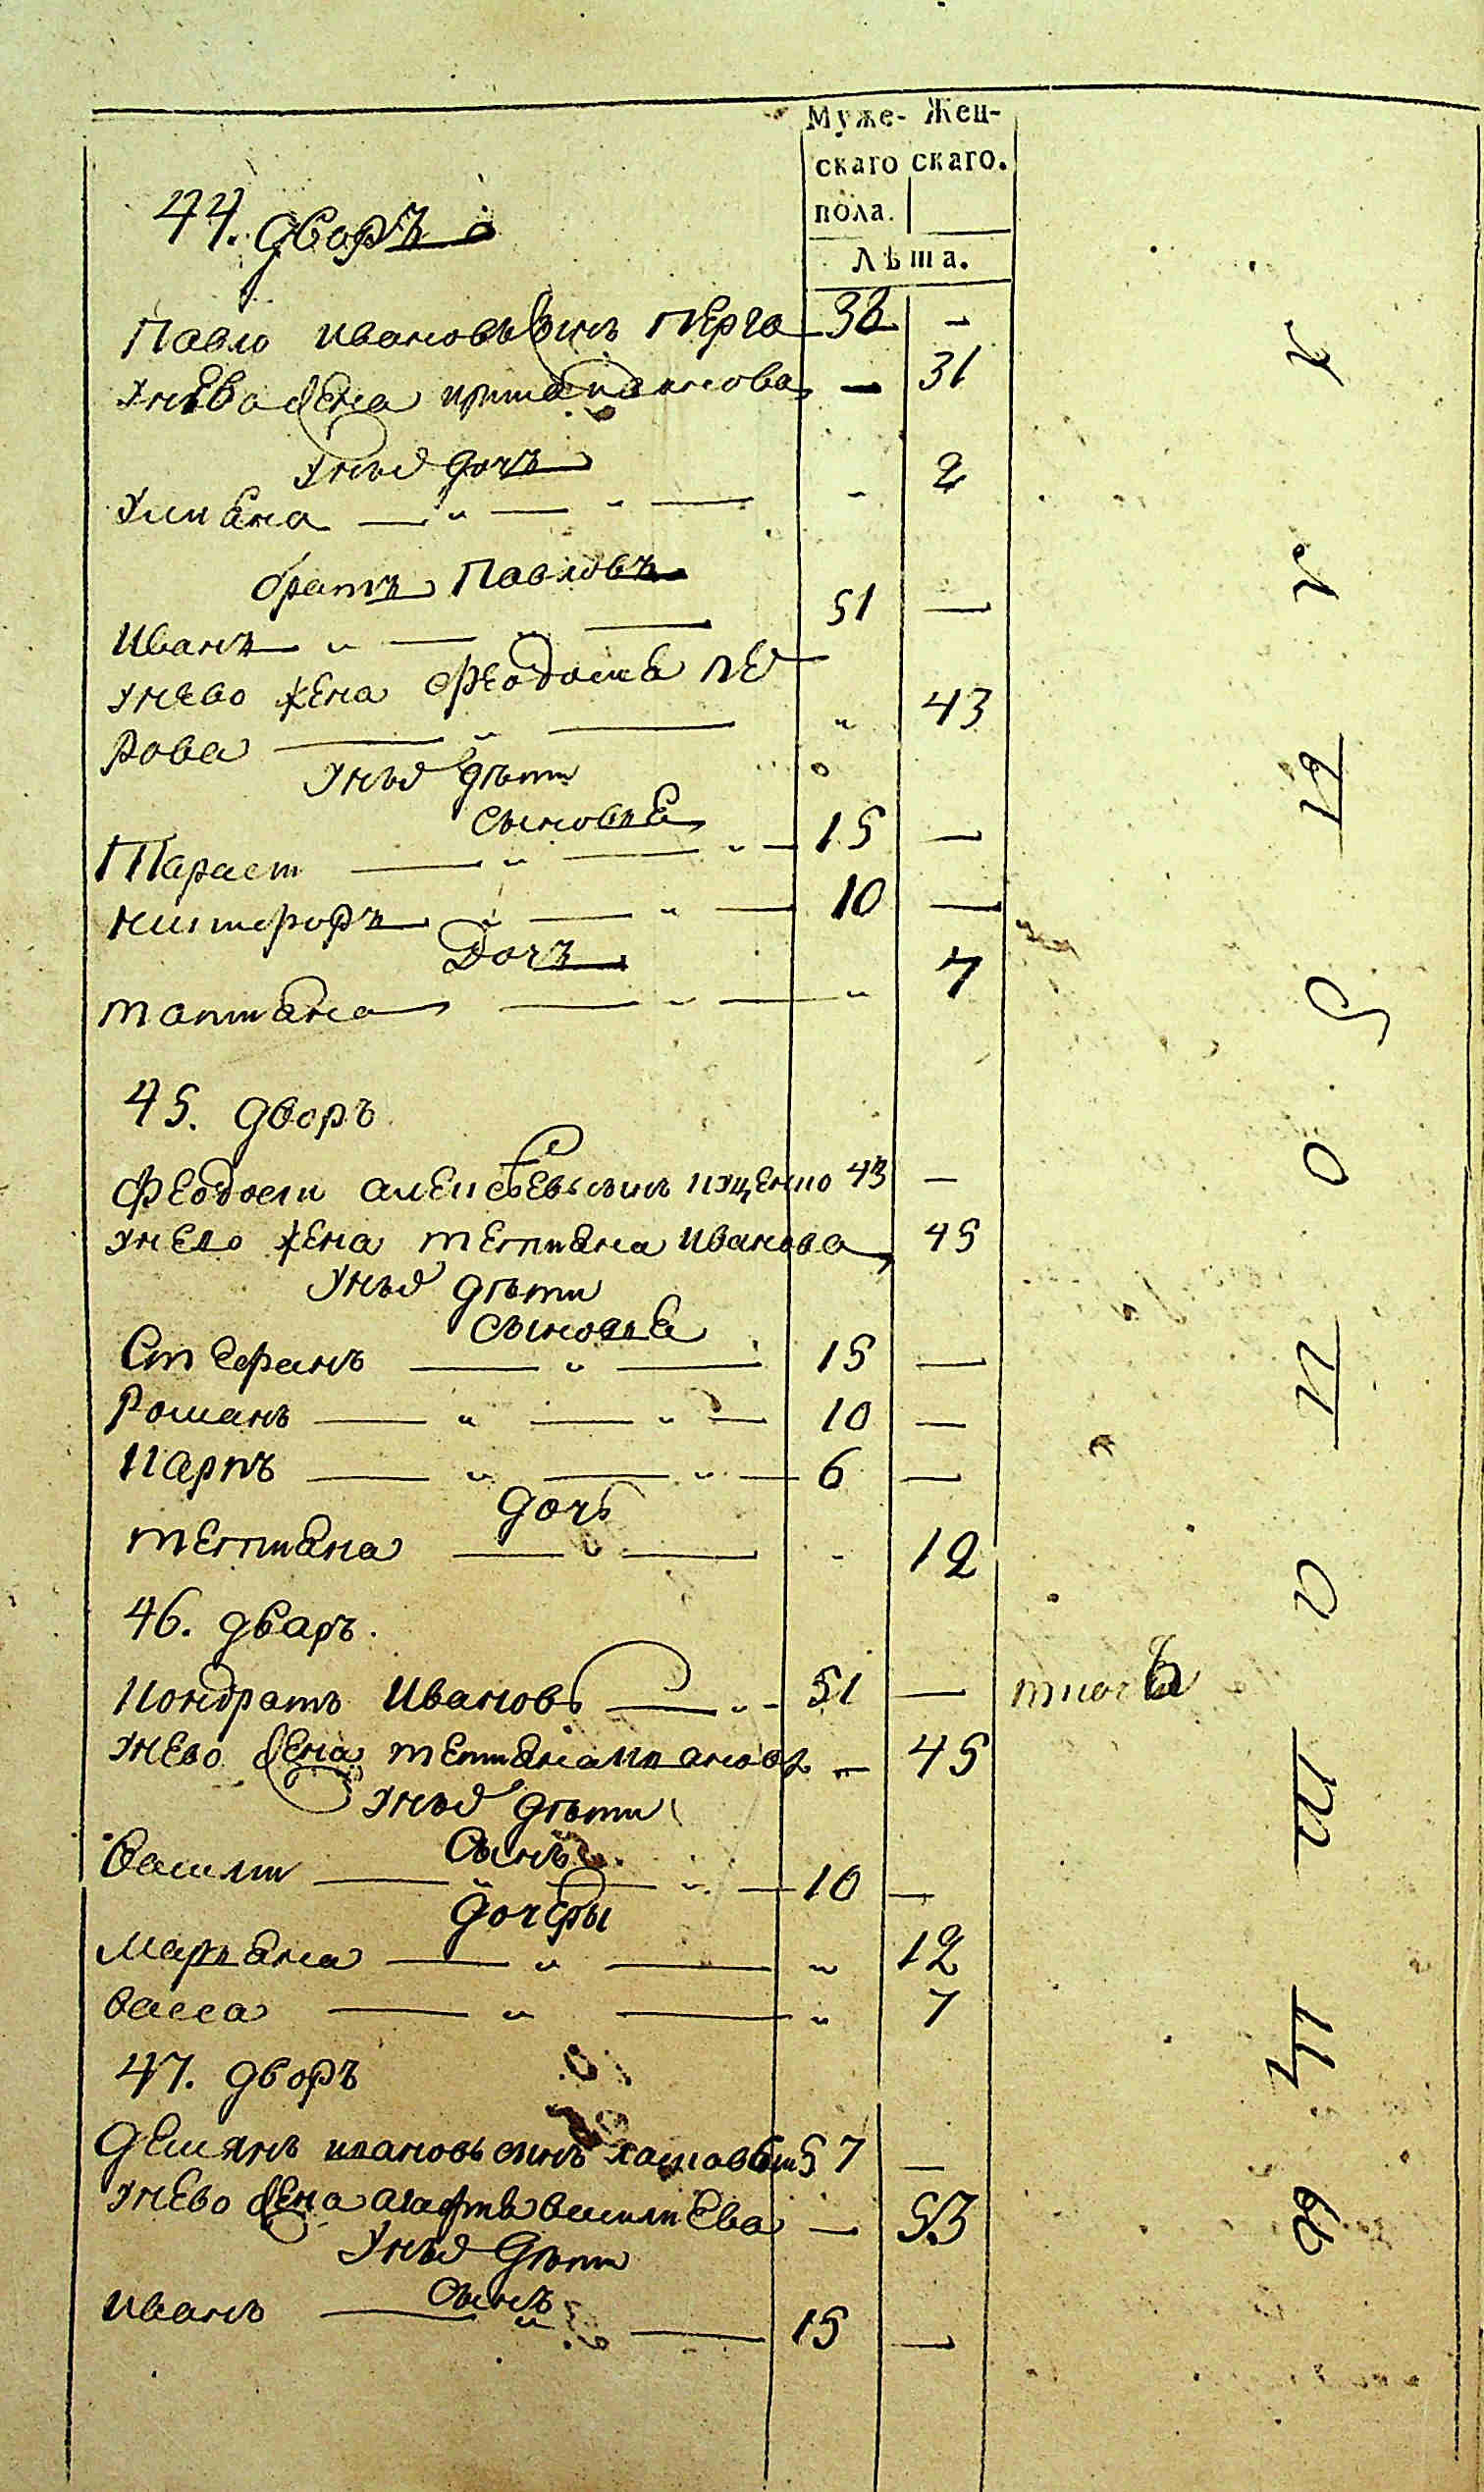 Муже- Жен-
скаго скаго.
пола.
Лѣта.
44. дворъ
Павло Ивановъ сынъ Перга 38 —
унево жена — 31
унихъ дочъ
Улияна — " — " — - 2
братъ Павловъ
Иванъ — " — " — 51 —
унево жена Феодосия Пе
рова — " — " 43
унихъ дѣти
сыновья
Тарасъ — " — " — 15 —
Никифоръ — " — " — 10 —
Дочъ
Татияна — " — " 7
45. дворъ
Феодоси Алексѣевъ сынъ Куценко 43 —
унево жена Тетияна Иванова 45
унихъ дѣти
сыновья
Стефанъ — " — 15 —
Романъ — " — " — 10 —
Карпъ — " — " — 6 —
дочь
Тетияна — " — - 12
46. дваръ.
Кондратъ Ивановъ — " - 51 —
унево жена Тетияна — 45
унихъ дѣти
Сынъ
Васили — " — " — 10 —
дочеры
Марьяна — " — " 12
Васса — " — " 7
47. дворъ
Демянъ Ивановъ сынъ 57 —
унево жена Агафия Василиева — 53
унихъ дѣти
Сынъ
Иванъ — " — 15 —